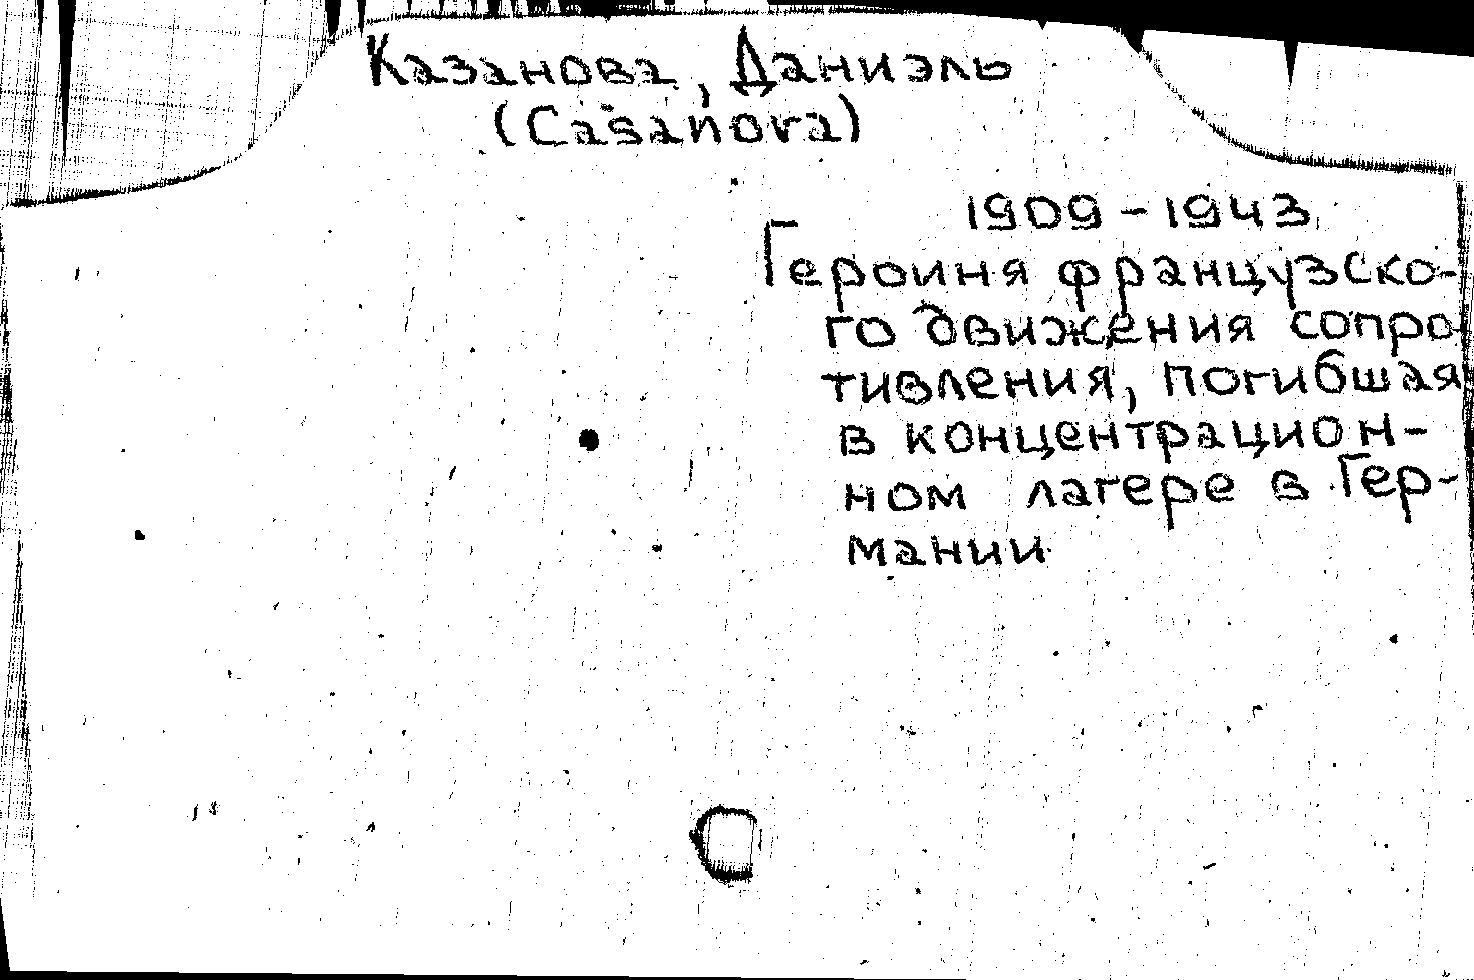 Казанова, Даниэль
(Casanova)
1909-1943
Героиня французско-
го движения сопро-
тивления, погибшая
в концентрацион-
ном лагере в Гер-
мании